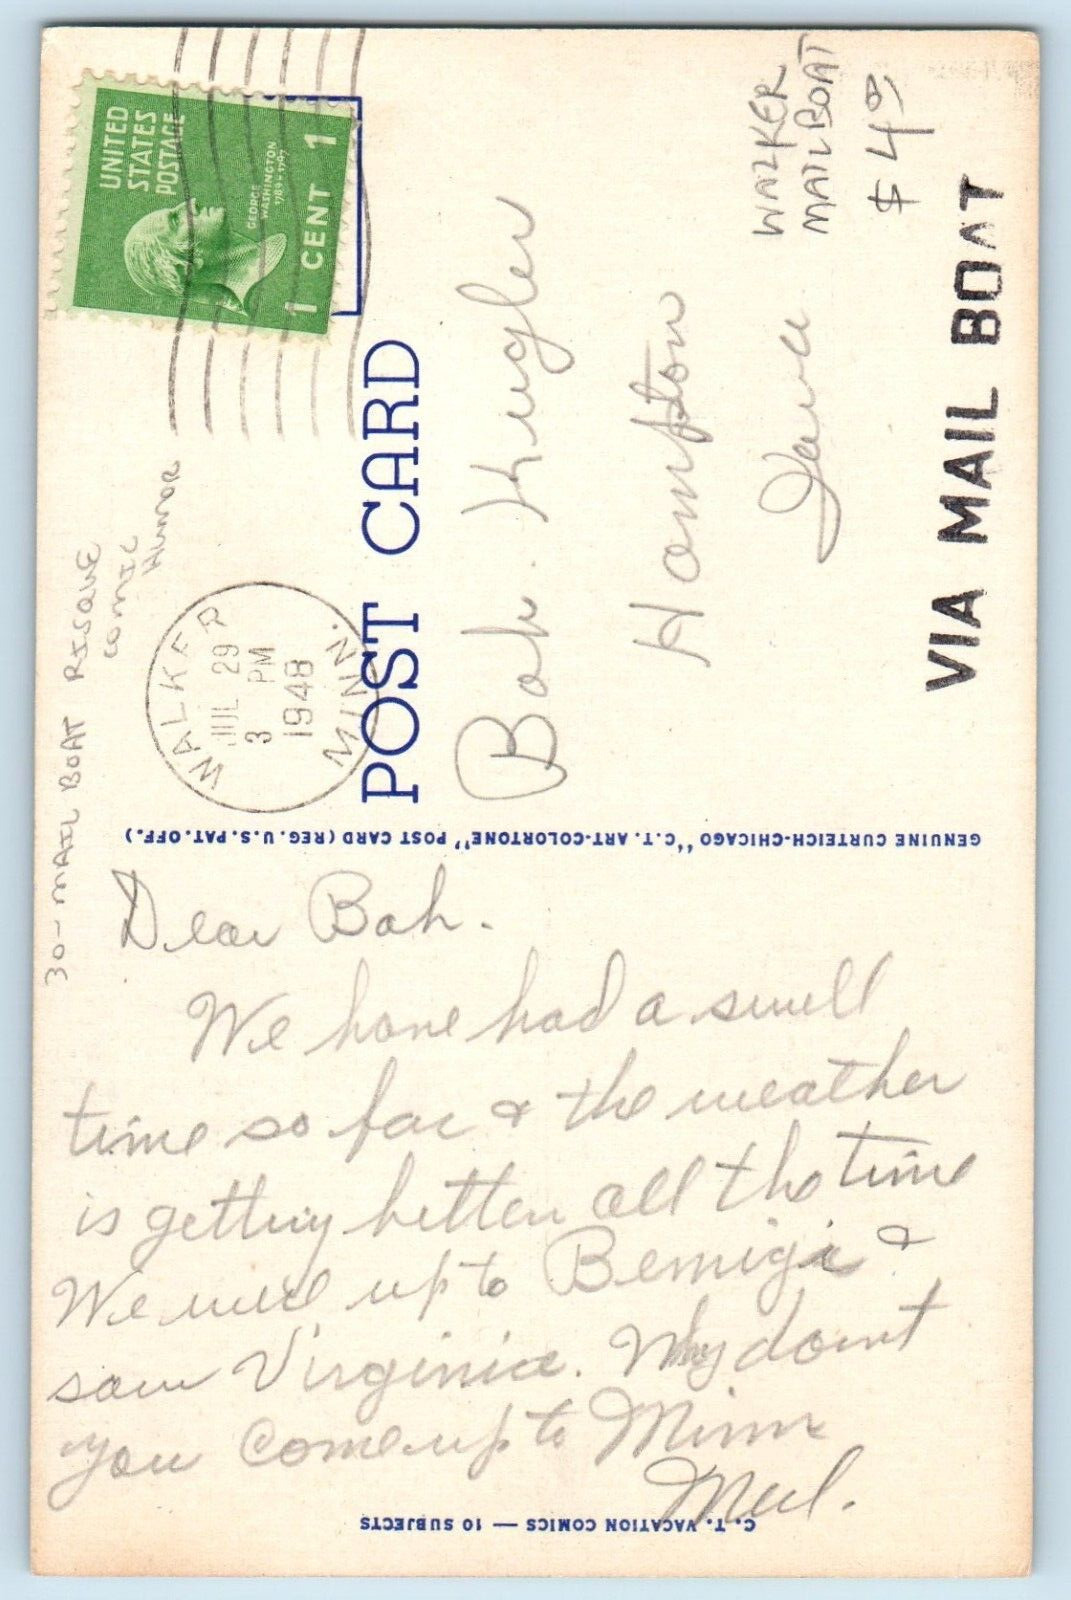 30-MAIL BOAT RISQUE
COMIC
HUMOR
UNITED
STATES
POSTAGE
GEORGE
WASHINGTON
1789-1797
1 CENT 1
WALKER
JUL 29
3 PM
1948
MINN.
POST CARD
WALKER
MAIL BOAT
$ 4 00
Bob Kugler
Hampton
Iowa
VIA MAIL BOAT
GENUINE CURTEICH-CHICAGO "C.T. ART-COLORTONE" POST CARD (REG. U.S. PAT. OFF.)
Dear Bob.
We have had a swell
time so far & the weather
is getting better all the time
We were up to Bemigi &
saw Virginia. Why don't
you come up to Minn
C. T. VACATION COMICS — 10 SUBJECTS